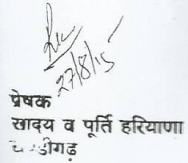 27/8/15
प्रेषक
खादय व पूर्ति हरियाणा
चण्डीगढ़